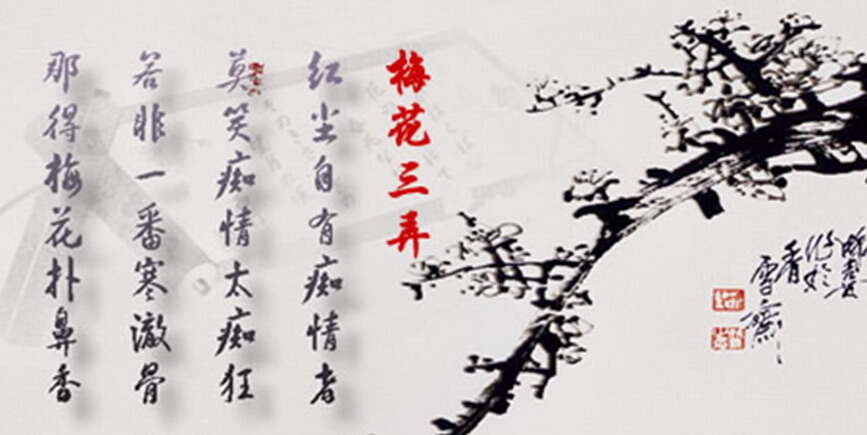 梅花三弄
红尘自有痴情者
莫笑痴情太痴狂
若非一番寒澈骨
那得梅花扑鼻香